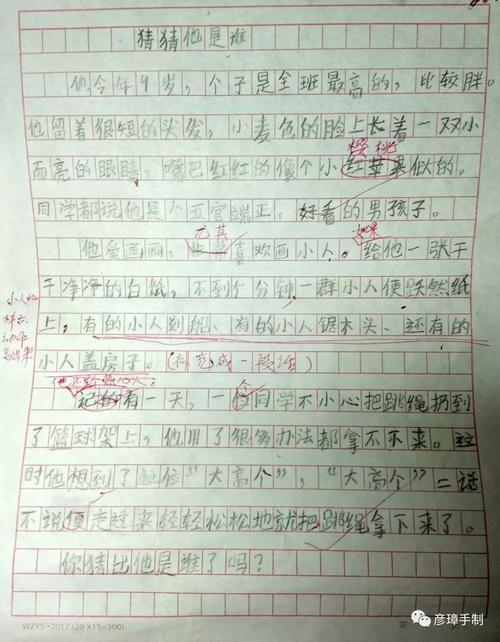 猜猜他是谁
他今年9岁，个子是全班最高的，比较胖。
他留着很短的头发，小麦色的脸上长着一双小
樱桃
而亮的眼睛，嘴巴红红的像个小红苹果似的。
同学都说他是个五官端正、好看的男孩子。
尤其 如果
他爱画画，喜欢画小人。给他一张干
干净净的白纸，不到分钟一群小人便跃然纸
小人的
上，有的小人划船、有的小人锯木头、还有的
小人盖房子。（补充成一段话）
记的有一天，一位同学不小心把跳绳扔到
个
了篮球架上，他用了很多办法都拿不下来。这
时他想到了这位“大高个”，“大高个”二话
不说便走过来轻轻松松地就把跳绳拿下来了。
你猜出他是谁了吗？
WZYS·2017 (20X15=300)
彦璋手制